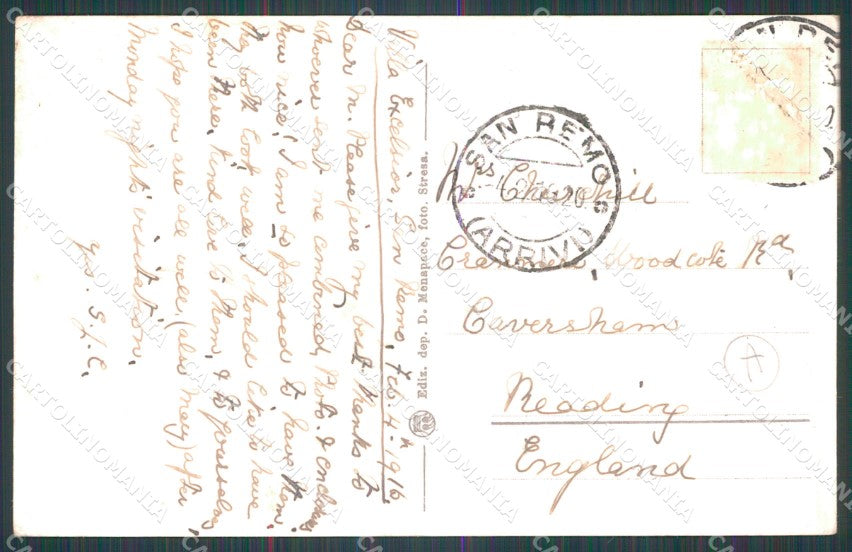 Villa Excelsior, San Remo, Feb. 4th 1916
Dear M. Please give my best thanks to
whoever sent me combined, Nos. & enclosing
how nice! I am so pleased to have them.
They both look well, I should like to have
been there. Kind love to them, & to yourself
I hope you are all well, (also Mary) after
Monday night's visitation.
Yrs. S.J.C.
Ediz. dep. D. Menapace, foto. Stresa.
SAN REMO
(ARRIVI)
Churchill
Woodcote Rd.
Caversham
Reading
England
CARTOLINOMANIA